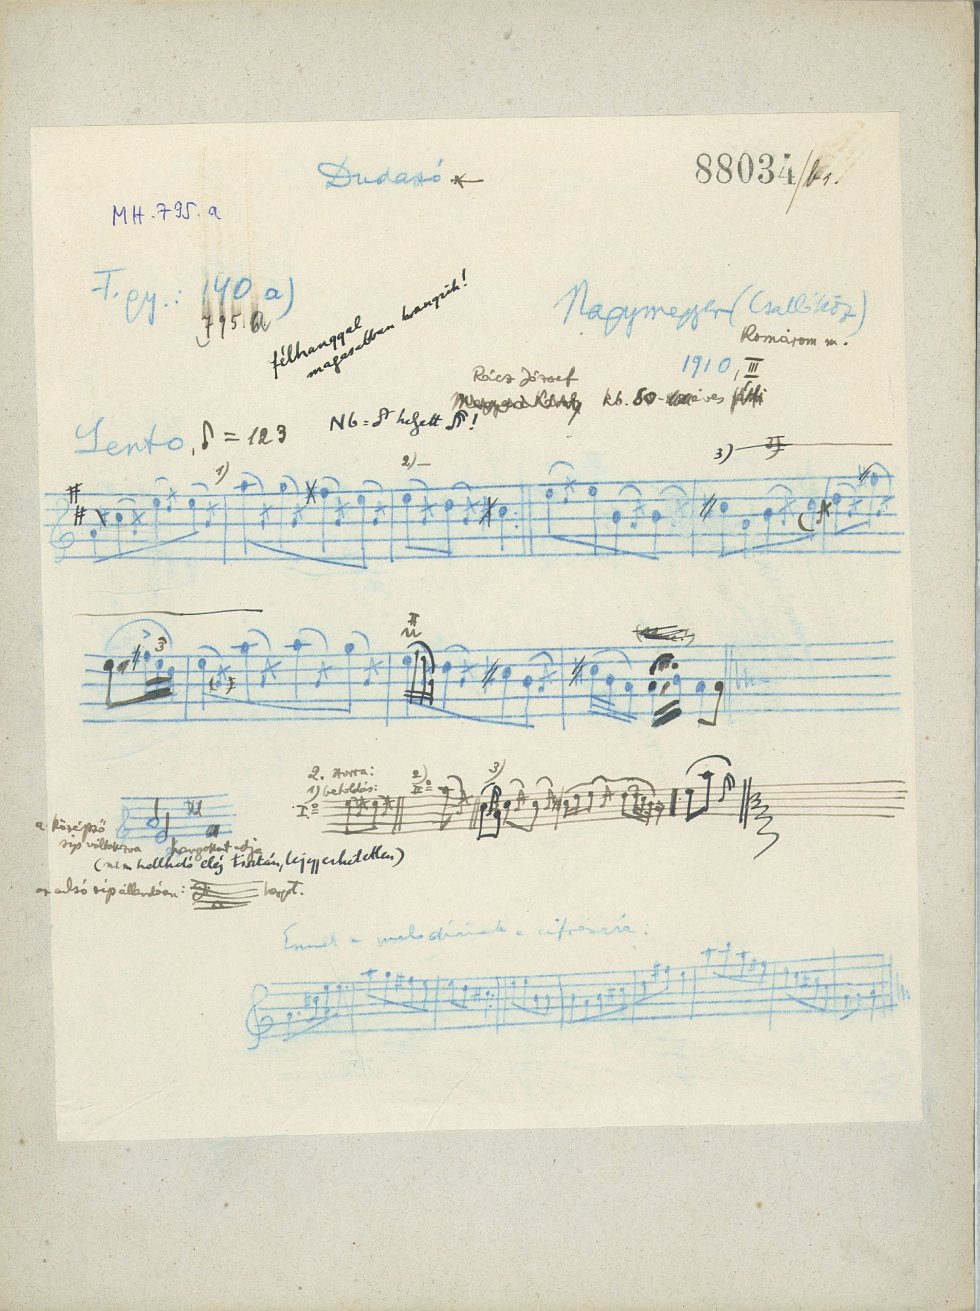 Dudaszó
88034/b1.
MH. 795. a
F. gy.: 140 a)
795. a
félhanggal
magasabban hangzik!
Nagymegyer (Csallóköz)
Komárom m.
1910, III
Rácz József
kb. 80
éves
Lento, ♪ = 123
Nb = helyett !
1)
2)
3)
3
2. strófa:
1) betoldás:
2)
3)
I
II
a középső
síp váltakozva
hangokat adja
(nem hallható elég tisztán, lejegyezhetetlen)
az alsó síp állandóan: hangot.
Ennek a melodiának a cifrázása: